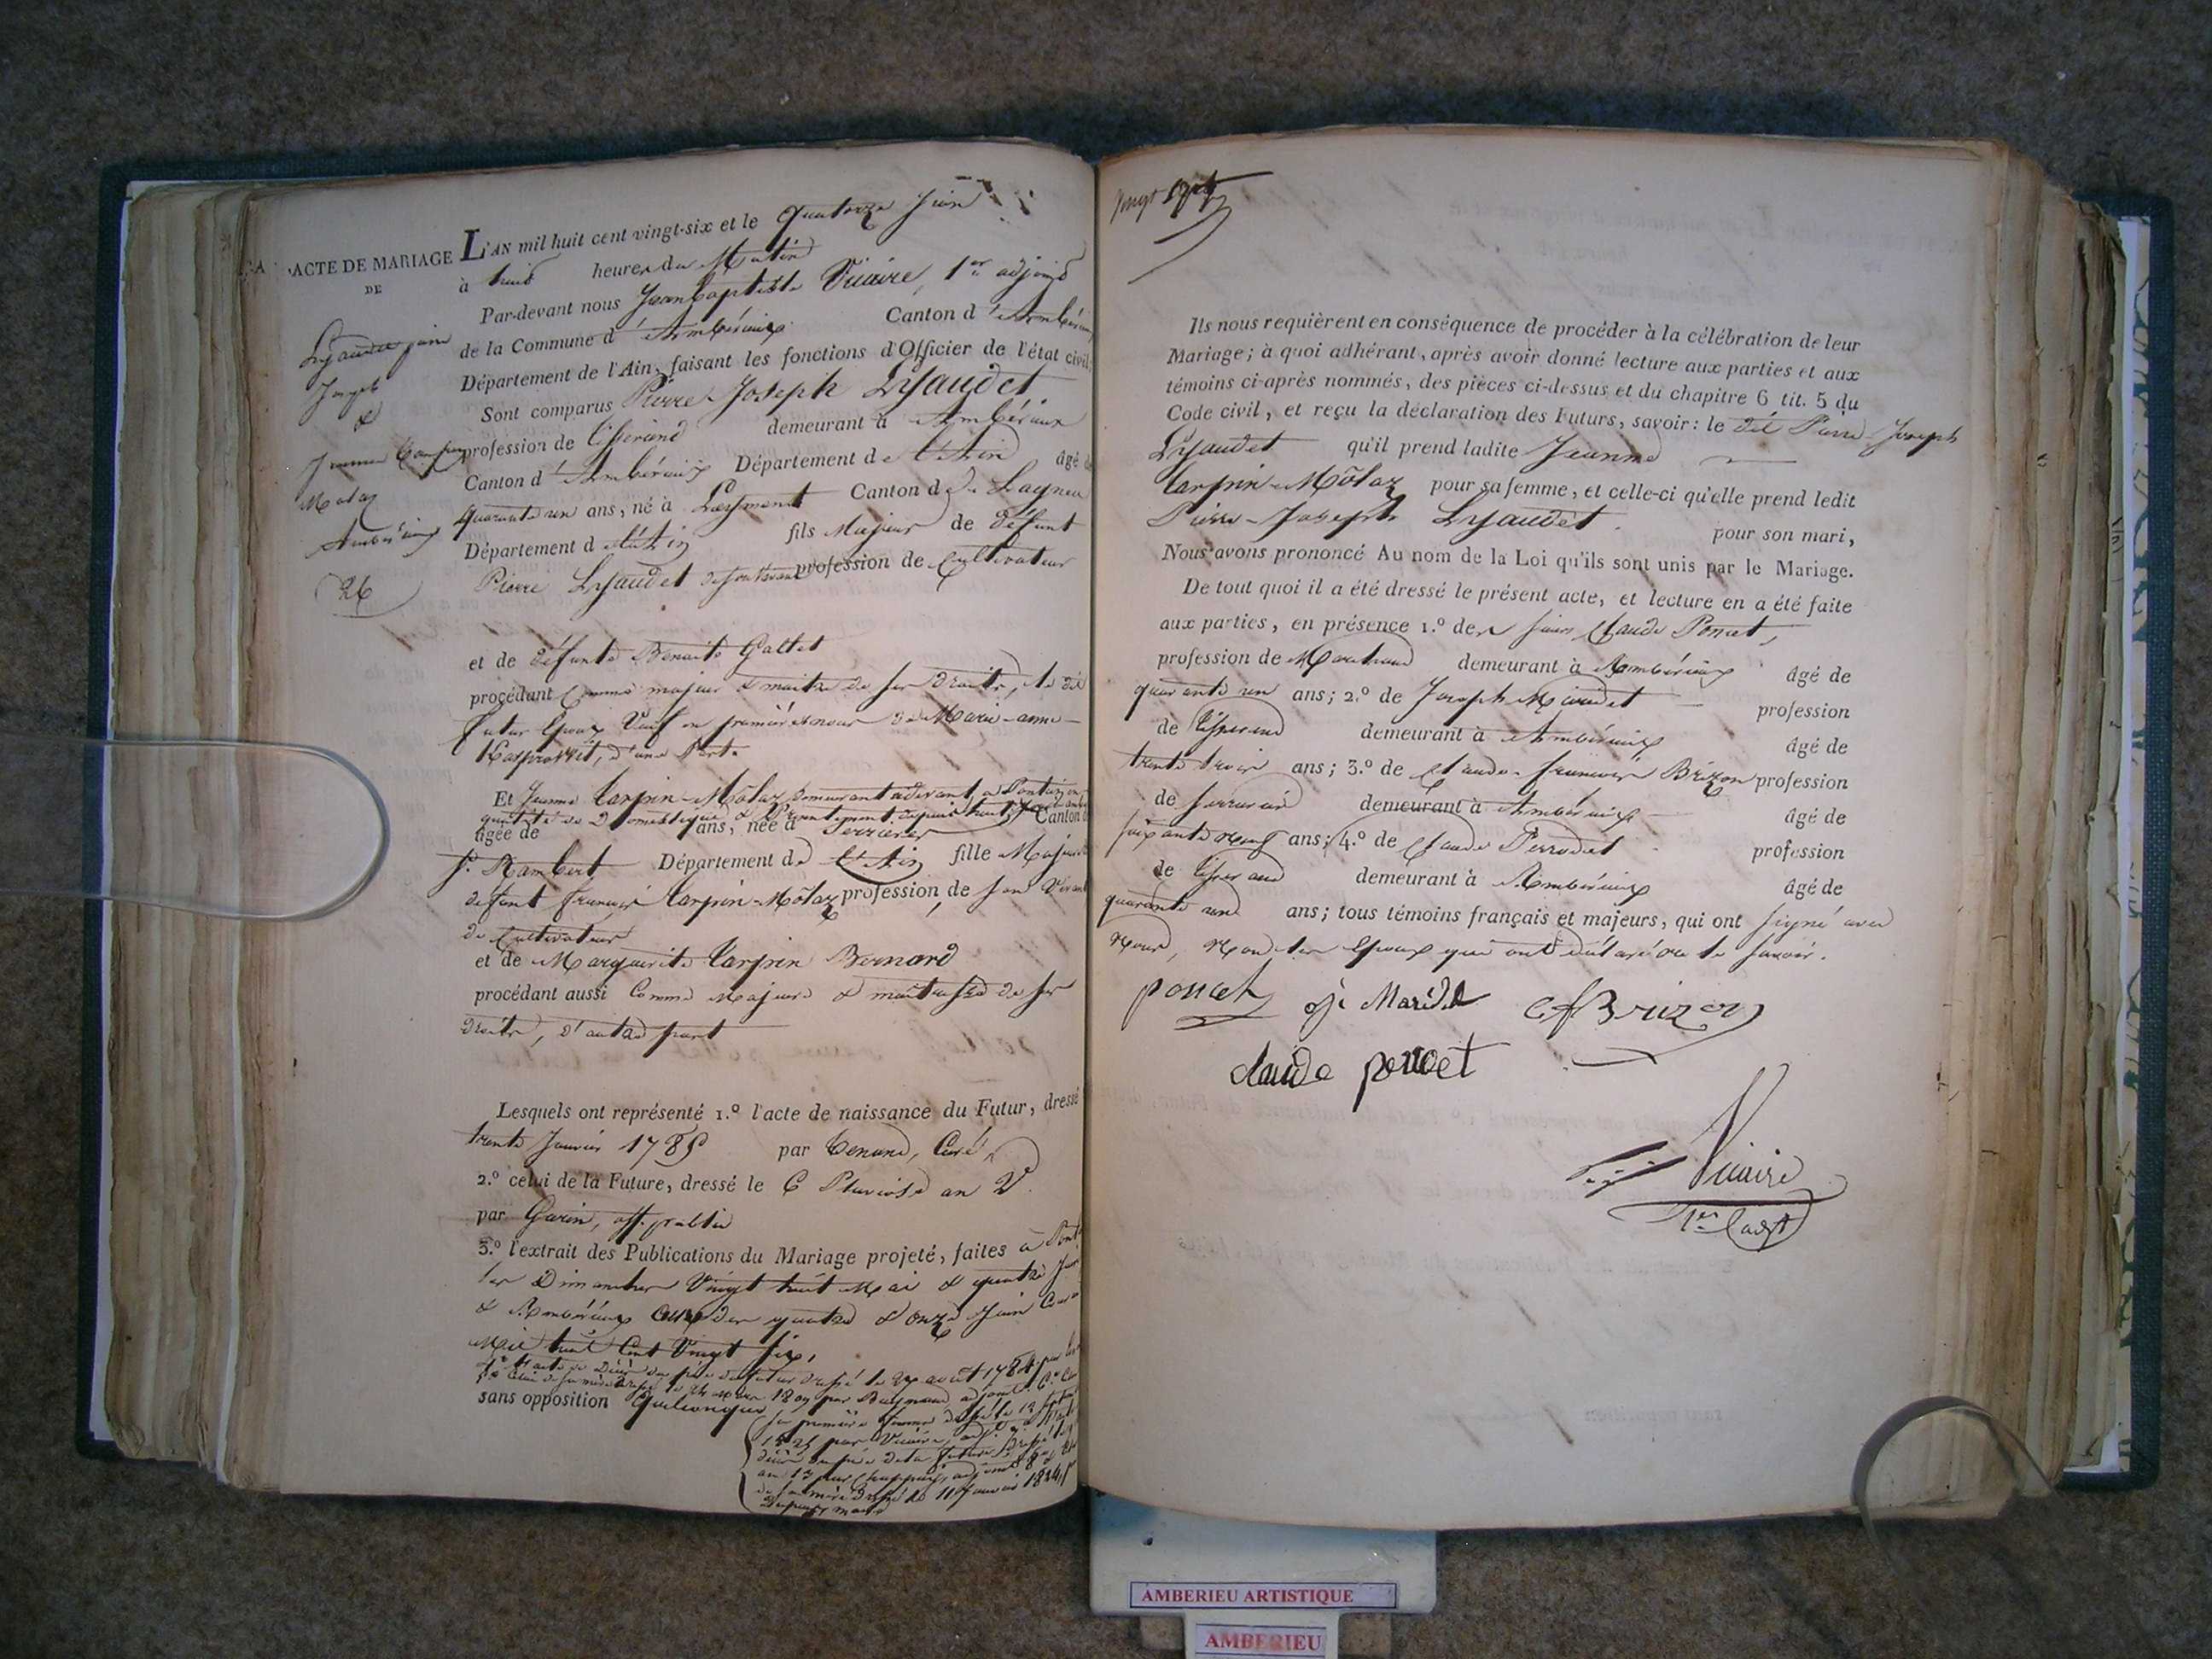 ACTE DE MARIAGE
DE
Lyaudet pierre
Joseph
&
Jeanne Carpin
Molaz
Ambérieux
26
L'AN mil huit cent vingt-six et le quatorze Juin
à huit heures du Matin
Par-devant nous Jean baptiste Vicaire, 1er adjoint
de la Commune d'Ambérieux Canton d'Ambérieux
Département de l'Ain, faisant les fonctions d'Officier de l'état civil,
Sont comparus Pierre-Joseph Lyaudet
profession de tisserand demeurant à Ambérieux
Canton d'Ambérieux Département de l'Ain âgé de
quarante un ans, né à Canton de Lagneu
Département de l'Ain fils Majeur de défunt
Pierre Lyaudet de son vivant profession de Cultivateur
et de défunte Benoite Galtet
procédant Comme majeur & maitre de ses droits, le dit
futur Epoux Veuf en premières noces de Marie-anne
d'une Part.
Et Jeanne Carpin-Môlaz, demeurant adevant à
qualité de Domestique & Présentement depuis
âgée de ans, née à Serrieres Canton de
St. Rambert Département de l'Ain fille Majeure
défunt françois Carpin-Môlaz profession, de son Vivant
de Cultivateur
et de Marguerite Carpin Bernard
procédant aussi Comme Majeure & maitresse de ses
droits, d'autre part
Lesquels ont représenté 1.º l'acte de naissance du Futur, dressé
trente Janvier 1785 par Tenand, Curé,
2.º celui de la Future, dressé le 6 Pluviose an V.
par Garin, off. public
3.º l'extrait des Publications du Mariage projeté, faites à
les Dimanches Vingt huit Mai & quatre
& Ambérieux les quatre & onze Juin
Mil huit Cent Vingt six,
4º l'acte de Décès du père du futur dressé le août 1784 par
5º Celui de sa mère dressé le 1809 par adjoint
sans opposition Quelconque
sa première femme dressé le 12
1825 par Vicaire, adjt.
décès du père de la future dressé
an 13 par adjoint
de sa mère dressé le 11 Janvier 1824
maire
Vingt Sept
Ils nous requièrent en conséquence de procéder à la célébration de leur
Mariage; à quoi adhérant, après avoir donné lecture aux parties et aux
témoins ci-après nommés, des pièces ci-dessus et du chapitre 6 tit. 5 du
Code civil, et reçu la déclaration des Futurs, savoir: le dit Pierre-Joseph
Lyaudet qu'il prend ladite Jeanne
Carpin-Môlaz pour sa femme, et celle-ci qu'elle prend ledit
Pierre-Joseph Lyaudet pour son mari,
Nous avons prononcé Au nom de la Loi qu'ils sont unis par le Mariage.
De tout quoi il a été dressé le présent acte, et lecture en a été faite
aux parties, en présence 1.º de Claude Poncet,
profession de Marchand demeurant à Ambérieux âgé de
quarante un ans; 2.º de Joseph profession
de tisserand demeurant à Ambérieux âgé de
trente trois ans; 3.º de Claude-françois Brizon profession
de serrurier demeurant à Ambérieux âgé de
soixante neuf ans; 4.º de Claude Perrodet profession
de tisserand demeurant à Ambérieux âgé de
quarante un ans; tous témoins français et majeurs, qui ont signé avec
Nous, Non les Epoux qui ont déclaré ne le savoir.
poncet CfBrizon
claude
Vicaire
1er adjt
AMBERIEU ARTISTIQUE
AMBERIEU